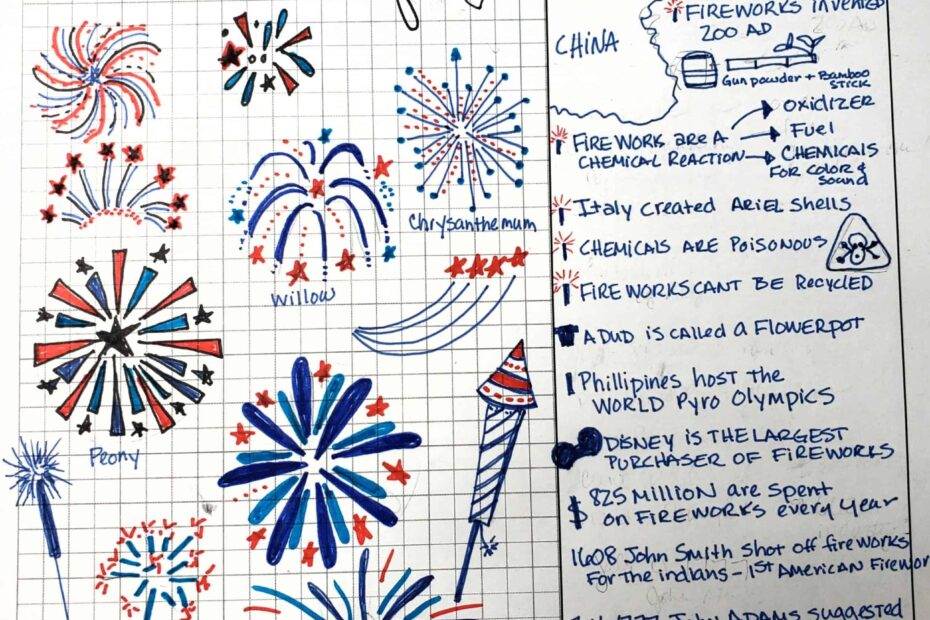 Chrysanthemum
Willow
Peony
CHINA
FIREWORKS INVENTED
200 AD
Gun powder + Bamboo
STICK
FIREWORK are A
CHEMICAL REACTION
OXIDLIZER
Fuel
CHEMICALS
FOR COLOR &
Sound
ITALY CREATED ARIEL SHELLS
CHEMICALS ARE POISONOUS
FIREWORKS CANT BE RECYCLED
A DUD IS CALLED A FLOWERPOT
Phillipines HOST THE
WORLD Pyro OLYMPICS
DISNEY IS THE LARGEST
PURCHASER OF FIREWORKS
$ 825 MILLION are spent
on FIREWORKS every year
1608 John Smith Shot off fireworks
For the indians - 1ST AMERICAN Firewor
John ADAMS suggested